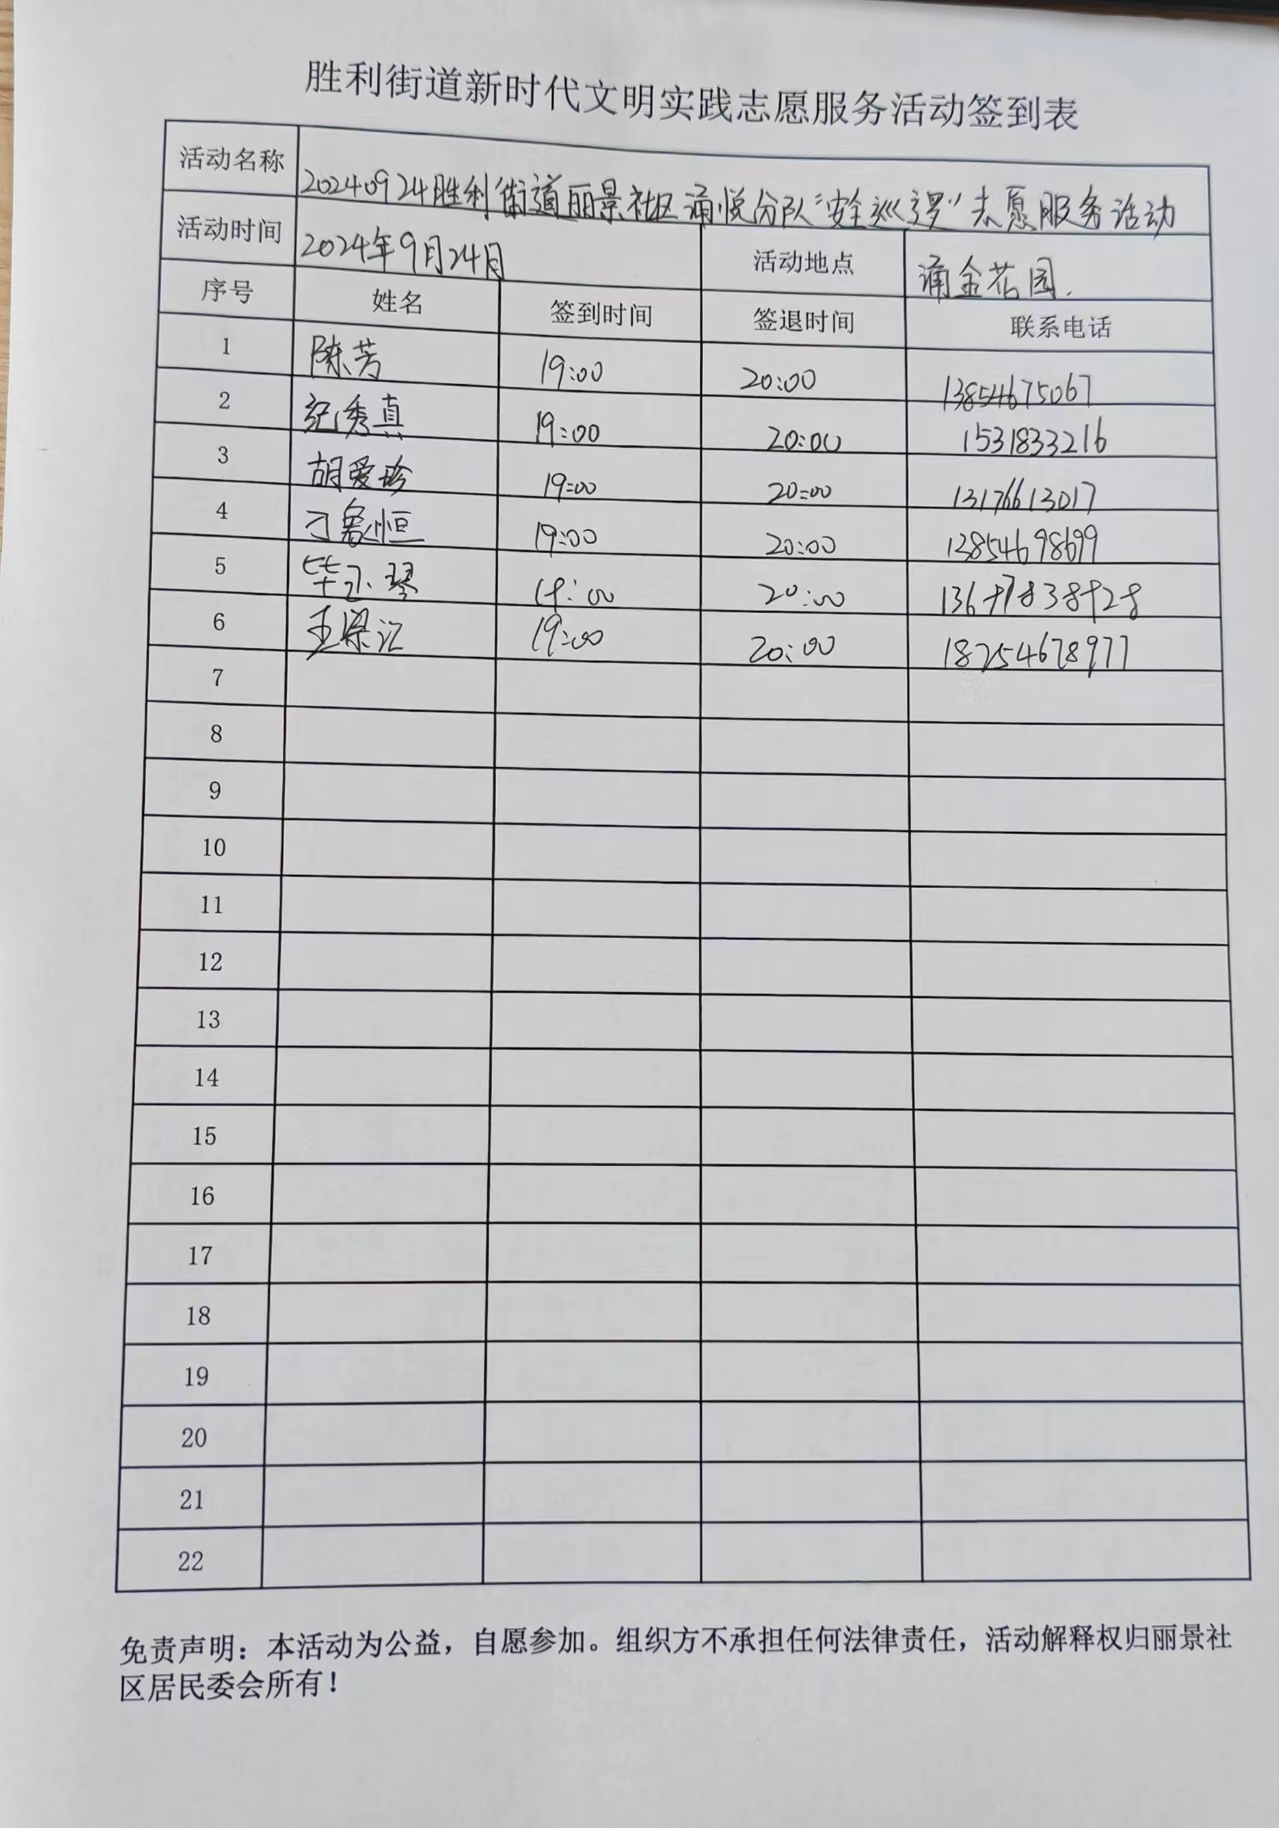 胜利街道新时代文明实践志愿服务活动签到表
活动名称 20240924胜利街道丽景社区涌悦分队“安全巡逻”志愿服务活动
活动时间 2024年9月24日 活动地点 涌金花园.
序号 姓名 签到时间 签退时间 联系电话
1 陈芳 19:00 20:00 13854675067
2 纪秀真 19:00 20:00 1531833216
3 胡爱珍 19:00 20:00 13176613017
4 刁鲁恒 19:00 20:00 13854698699
5 毕玉琴 19:00 20:00
6 19:00 20:00 18254678977
7
8
9
10
11
12
13
14
15
16
17
18
19
20
21
22
免责声明：本活动为公益，自愿参加。组织方不承担任何法律责任，活动解释权归丽景社
区居民委会所有！